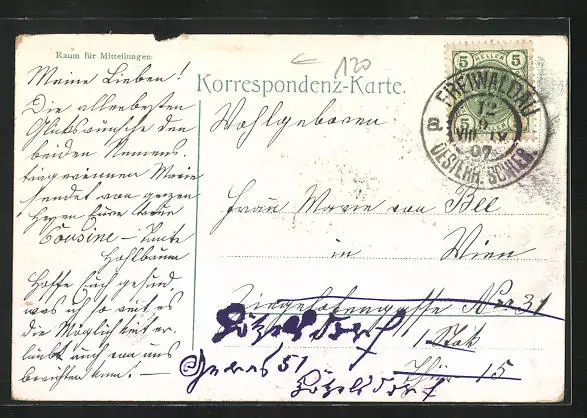 Raum für Mitteilungen:
Meine Lieben!
Die allerbesten
Glückwünsche den
beiden Namens
Marie
sendet von ganzen
Herzen Eure treue
Cousine –
Hohlbaum
Hoffe Euch gesund,
was ich so weit es
die Möglichkeit er-
laubt auch von uns
berichten kann! –
120
Korrespondenz-Karte.
5 HELLER 5
FREIWALDAU
12
VIII IX
07
OESTERR. SCHLES.
Wohlgeboren
Frau Marie von Bee
in Wien
Ziegelofengasse Nro. 31
1 Stock
Thür 15
51